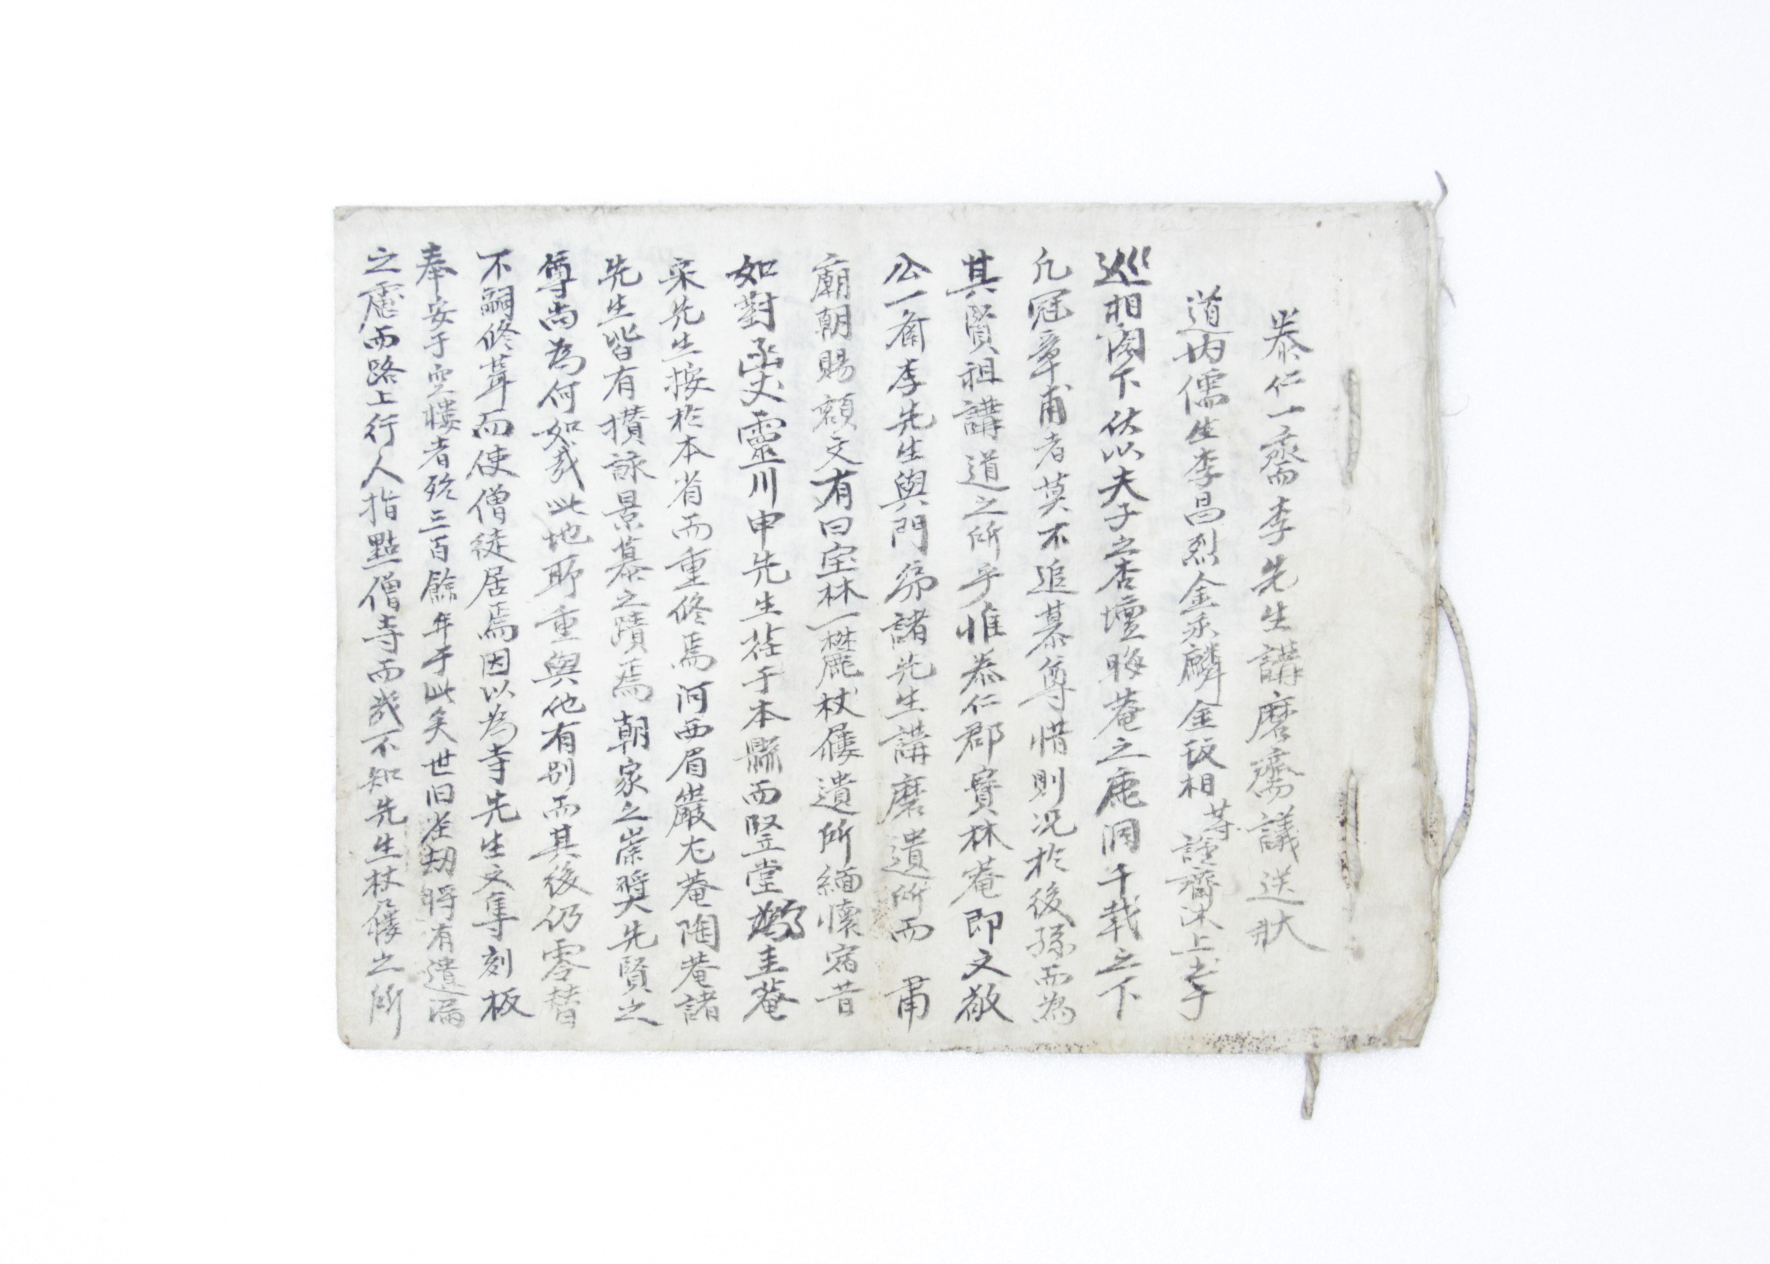 泰仁一齋李先生講磨齋議送狀
道內儒生李昌烈金禾麟金珳相等謹齋沐上書于
巡相閤下伏以夫子之杏壇晦菴之鹿洞千載之下
凡冠章甫者莫不追慕尊惜則況於後孫而為
其賢祖講道之所乎惟泰仁郡寶林菴即文敬
公一齋李先生與門弟諸先生講磨遺所而 肅
廟朝賜額文有曰宝林一麓杖屨遺所緬懷宿昔
如對函丈靈川申先生莅于本縣而竪堂焉圭菴
宋先生按於本省而重修焉河西眉巖尤菴陶菴諸
先生皆有攢詠景慕之蹟焉朝家之崇奬先賢之
尊尚為何如哉此地耶重與他有別而其後仍零替
不嗣修葺而使僧徒居焉因以為寺先生文集刻板
奉安于空樓者殆三百餘年于此矣世旧崔刼將有遺漏
之慮而路上行人指點僧寺而哉不知先生杖屨之所